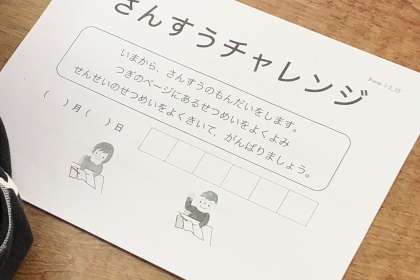 さんすうチャレンジ
いまから、さんすうのもんだいをします。
つぎのページにあるせつめいをよくよみ
せんせいのせつめいをよくきいて、がんばりましょう。
(　)月(　)日